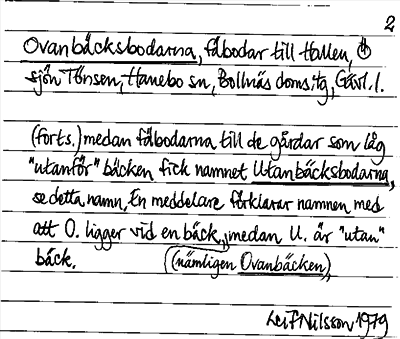 2
Ovanbäcksbodarna, fäbodar till Hallen, Ö
sjön Tönsen, Hanebo sn, Bollnäs doms:tg, Gävl. l.
(forts.) medan fäbodarna till de gårdar som låg
"utanför" bäcken fick namnet Utanbäcksbodarna,
se detta namn. En meddelare förklarar namnen med
att O. ligger vid en bäck, medan U. är "utan"
bäck. (nämligen Ovanbäcken),
Leif Nilsson 1979